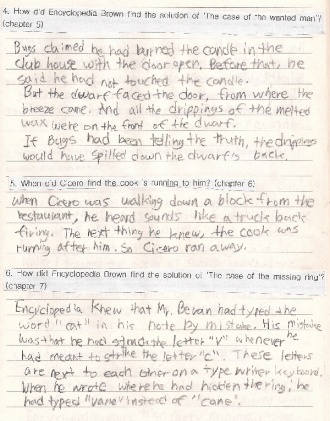 4. How did Encyclopedia Brown find the solution of 'The case of the wanted man'?
(chapter 5)
Bugs claimed he had burned the candle in the
club house with the door open. Before that, he
said he had not touched the candle.
But the dwarf faced the door, from where the
breeze came. And all the drippings of the melted
wax were on the front of the dwarf.
If Bugs had been telling the truth, the drippings
would have spilled down the dwarf's back.
5. When did Cicero find the cook is running to him? (chapter 6)
when Cicero was walking down a block from the
restaurant, he heard sounds like a truck back
firing. The next thing he knew, the cook was
running after him. So Cicero ran away.
6. How did Encyclopedia Brown find the solution of 'The case of the missing ring'?
(chapter 7)
Encyclopedia knew that Mr. Bevan had typed the
word "cat" in his note by mistake. His mistake
was that he had struck the letter "V" whenever he
had meant to strike the letter "c". These letters
are next to each other on a type writer keyboard.
When he wrote where he had hidden the ring, he
had typed "vane" instead of "cane".